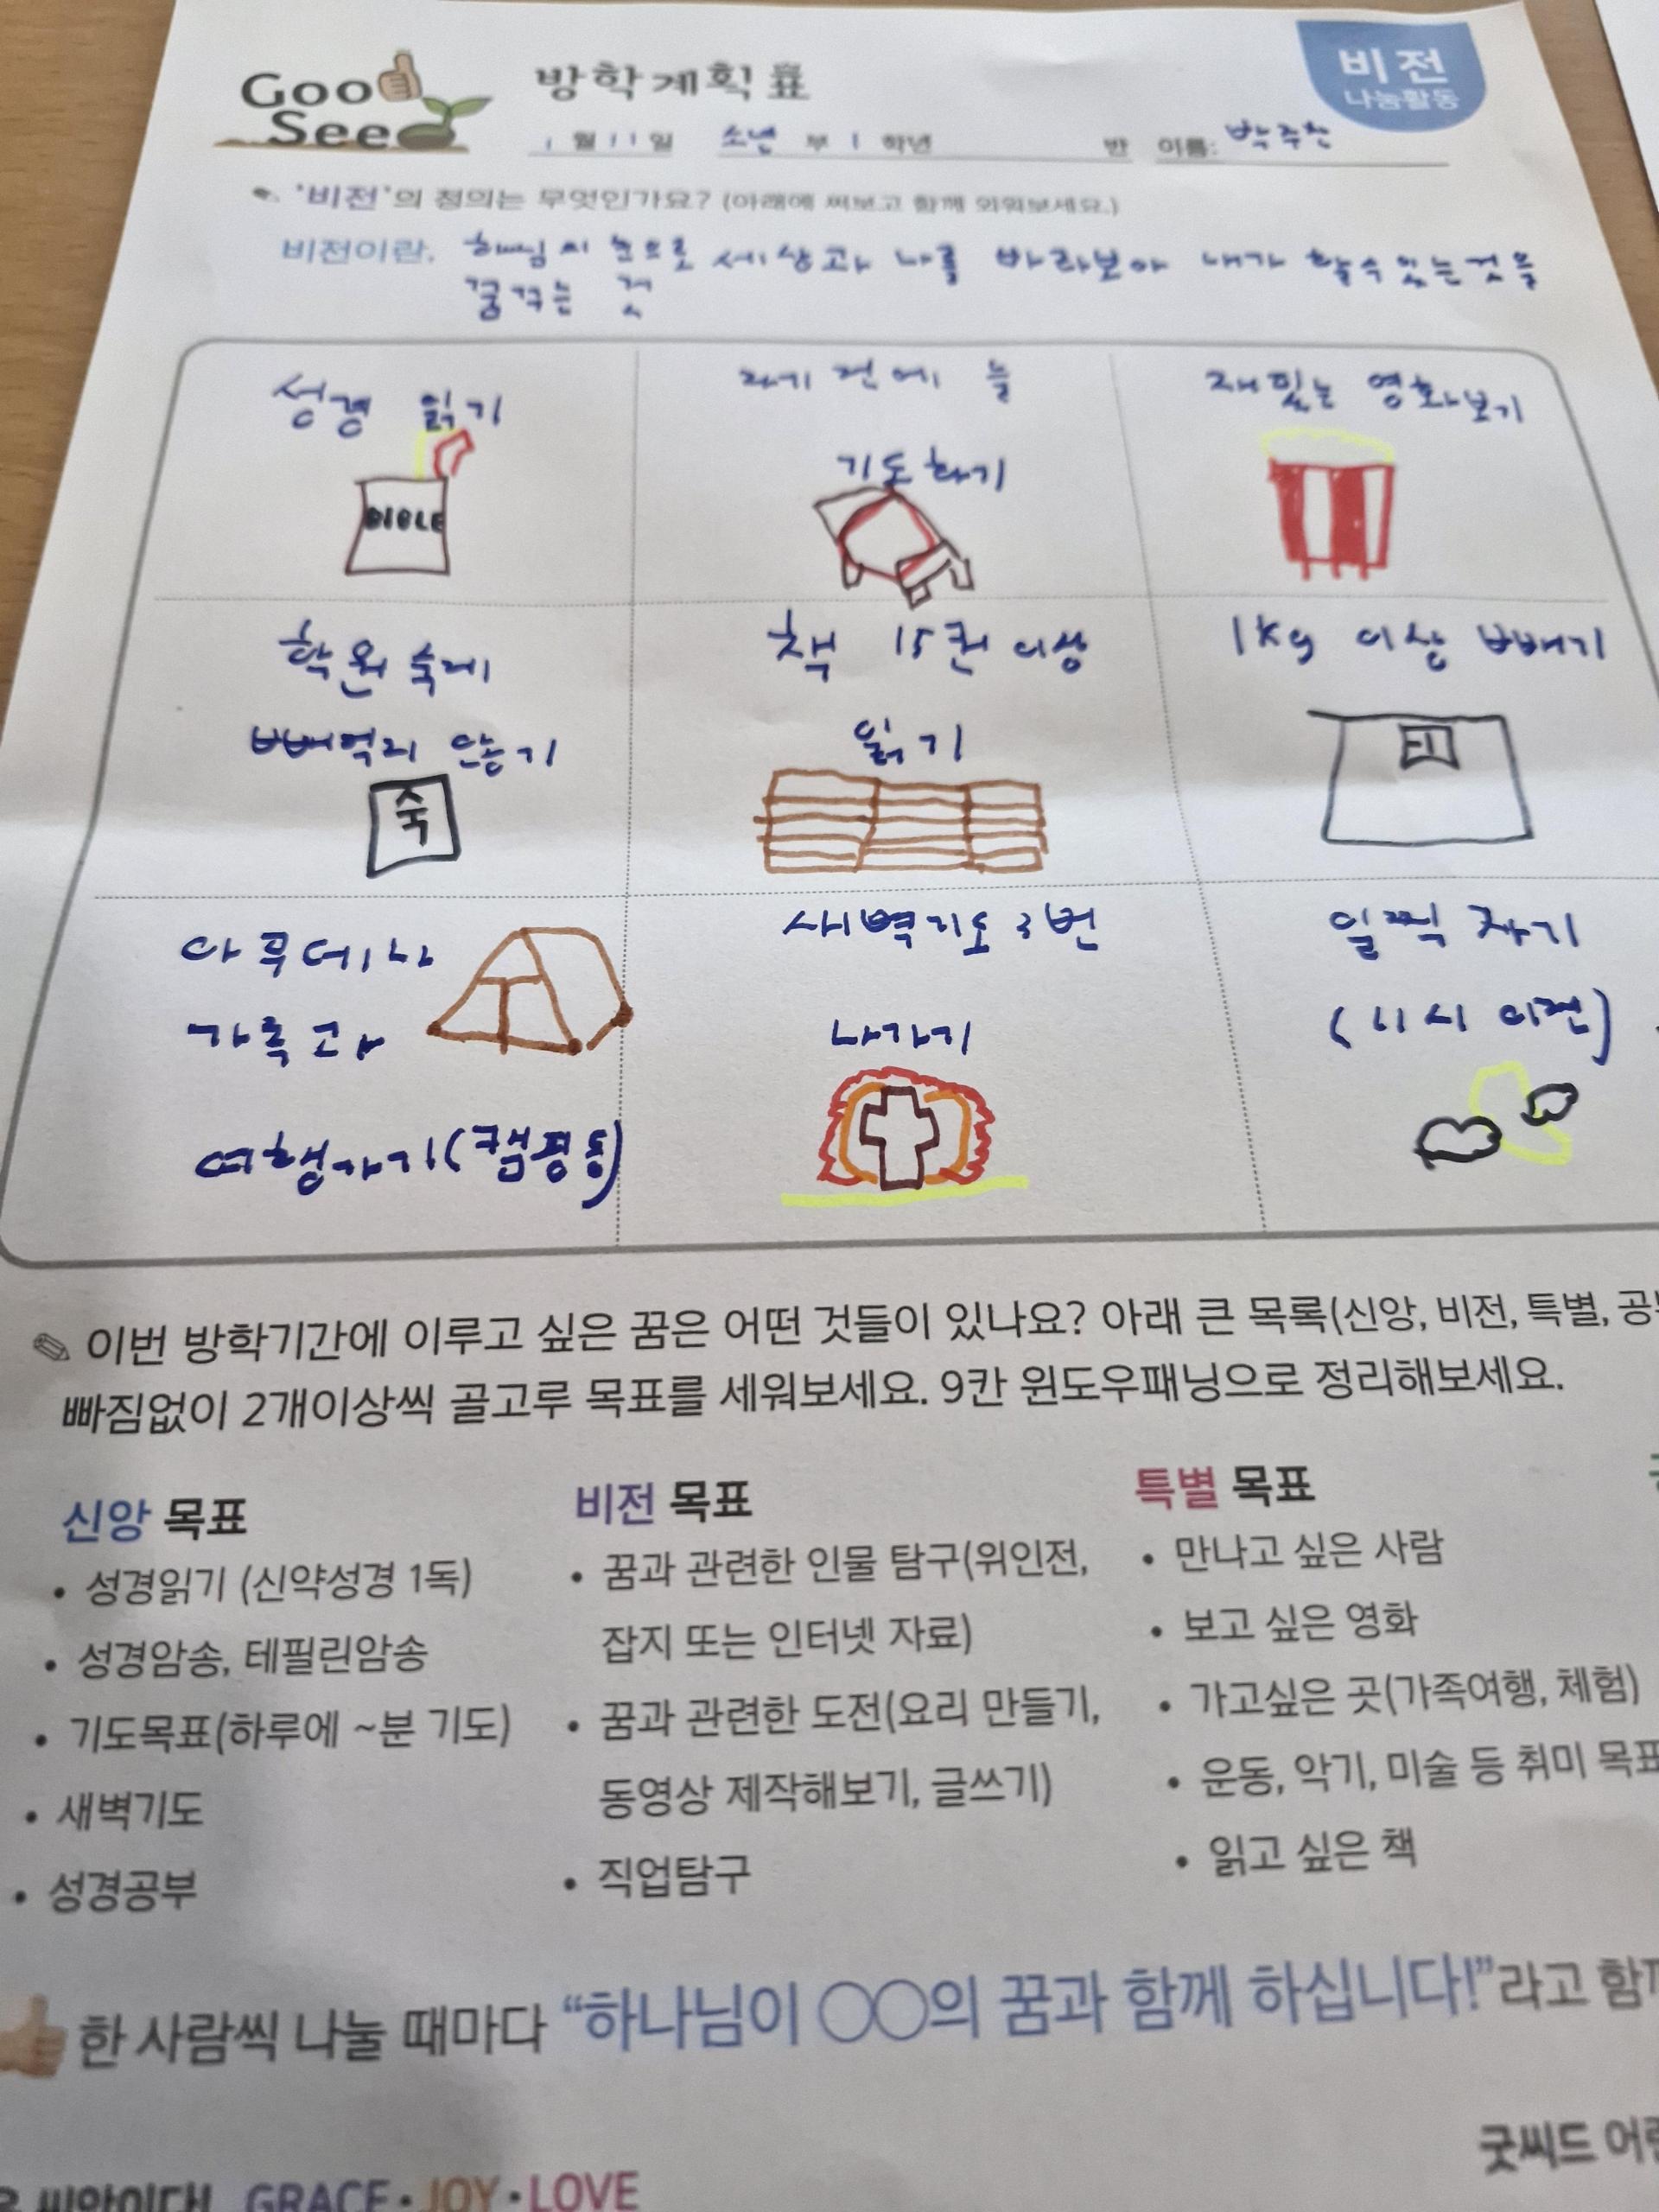 Goo
See
방학계획표
비전
나눔활동
1월 11일 소년 부 1 학년 반 이름:
'비전'의 정의는 무엇인가요? (아래에 써보고 함께 외워보세요.)
비전이란. 눈으로 세상과 나를 바라보아 내가 할수있는것을
꿈꾸는 것
성경 읽기
BIBLE
자기 전에 늘
기도하기
재밌는 영화보기
학원숙제
빼먹지 않기
숙
책 15권 이상
읽기
1kg 이상 빼기
가족과
여행가기(캠핑등)
새벽기도 3번
나가기
일찍 자기
(11시 이전)
이번 방학기간에 이루고 싶은 꿈은 어떤 것들이 있나요? 아래 큰 목록(신앙, 비전, 특별,
빠짐없이 2개이상씩 골고루 목표를 세워보세요. 9칸 윈도우패닝으로 정리해보세요.
신앙 목표
• 성경읽기 (신약성경 1독)
• 성경암송, 테필린암송
• 기도목표(하루에 ~분 기도)
• 새벽기도
• 성경공부
비전 목표
• 꿈과 관련한 인물 탐구(위인전,
잡지 또는 인터넷 자료)
• 꿈과 관련한 도전(요리 만들기,
동영상 제작해보기, 글쓰기)
• 직업탐구
특별 목표
• 만나고 싶은 사람
• 보고 싶은 영화
• 가고싶은 곳(가족여행, 체험)
• 운동, 악기, 미술 등 취미 목표
• 읽고 싶은 책
한 사람씩 나눌 때마다 “하나님이 ○○의 꿈과 함께 하십니다!”라고
굿씨드
씨앗이다! GRACE·JOY·LOVE